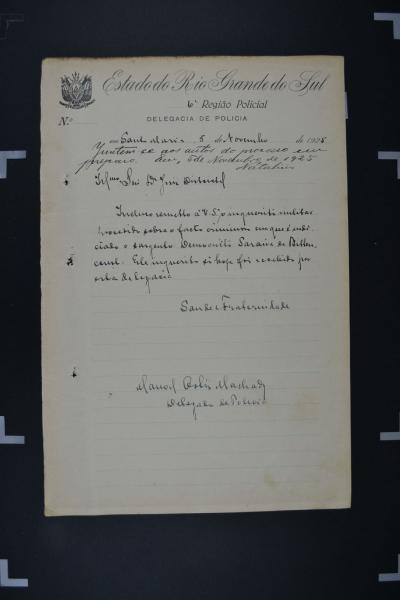 Estado do Rio Grande do Sul
6ª Região Policial
DELEGACIA DE POLICIA
Nº
em Santa Maria 5 de Novembro de 1925
Juntem-se aos autos do processo em
preparo. 5 de Novembro de 1925
Illmo Snr Dr Juiz Districtal
Incluso remetto á V. S. o inquerito militar
procedido sobre o facto criminoso em que é indi-
ciado o sargento Democrito Saraiva de Bitten
court. Este inquerito só hoje foi recebido por
esta delegacia
Saude e Fraternidade
Manoel Machado
Delegado de Policia